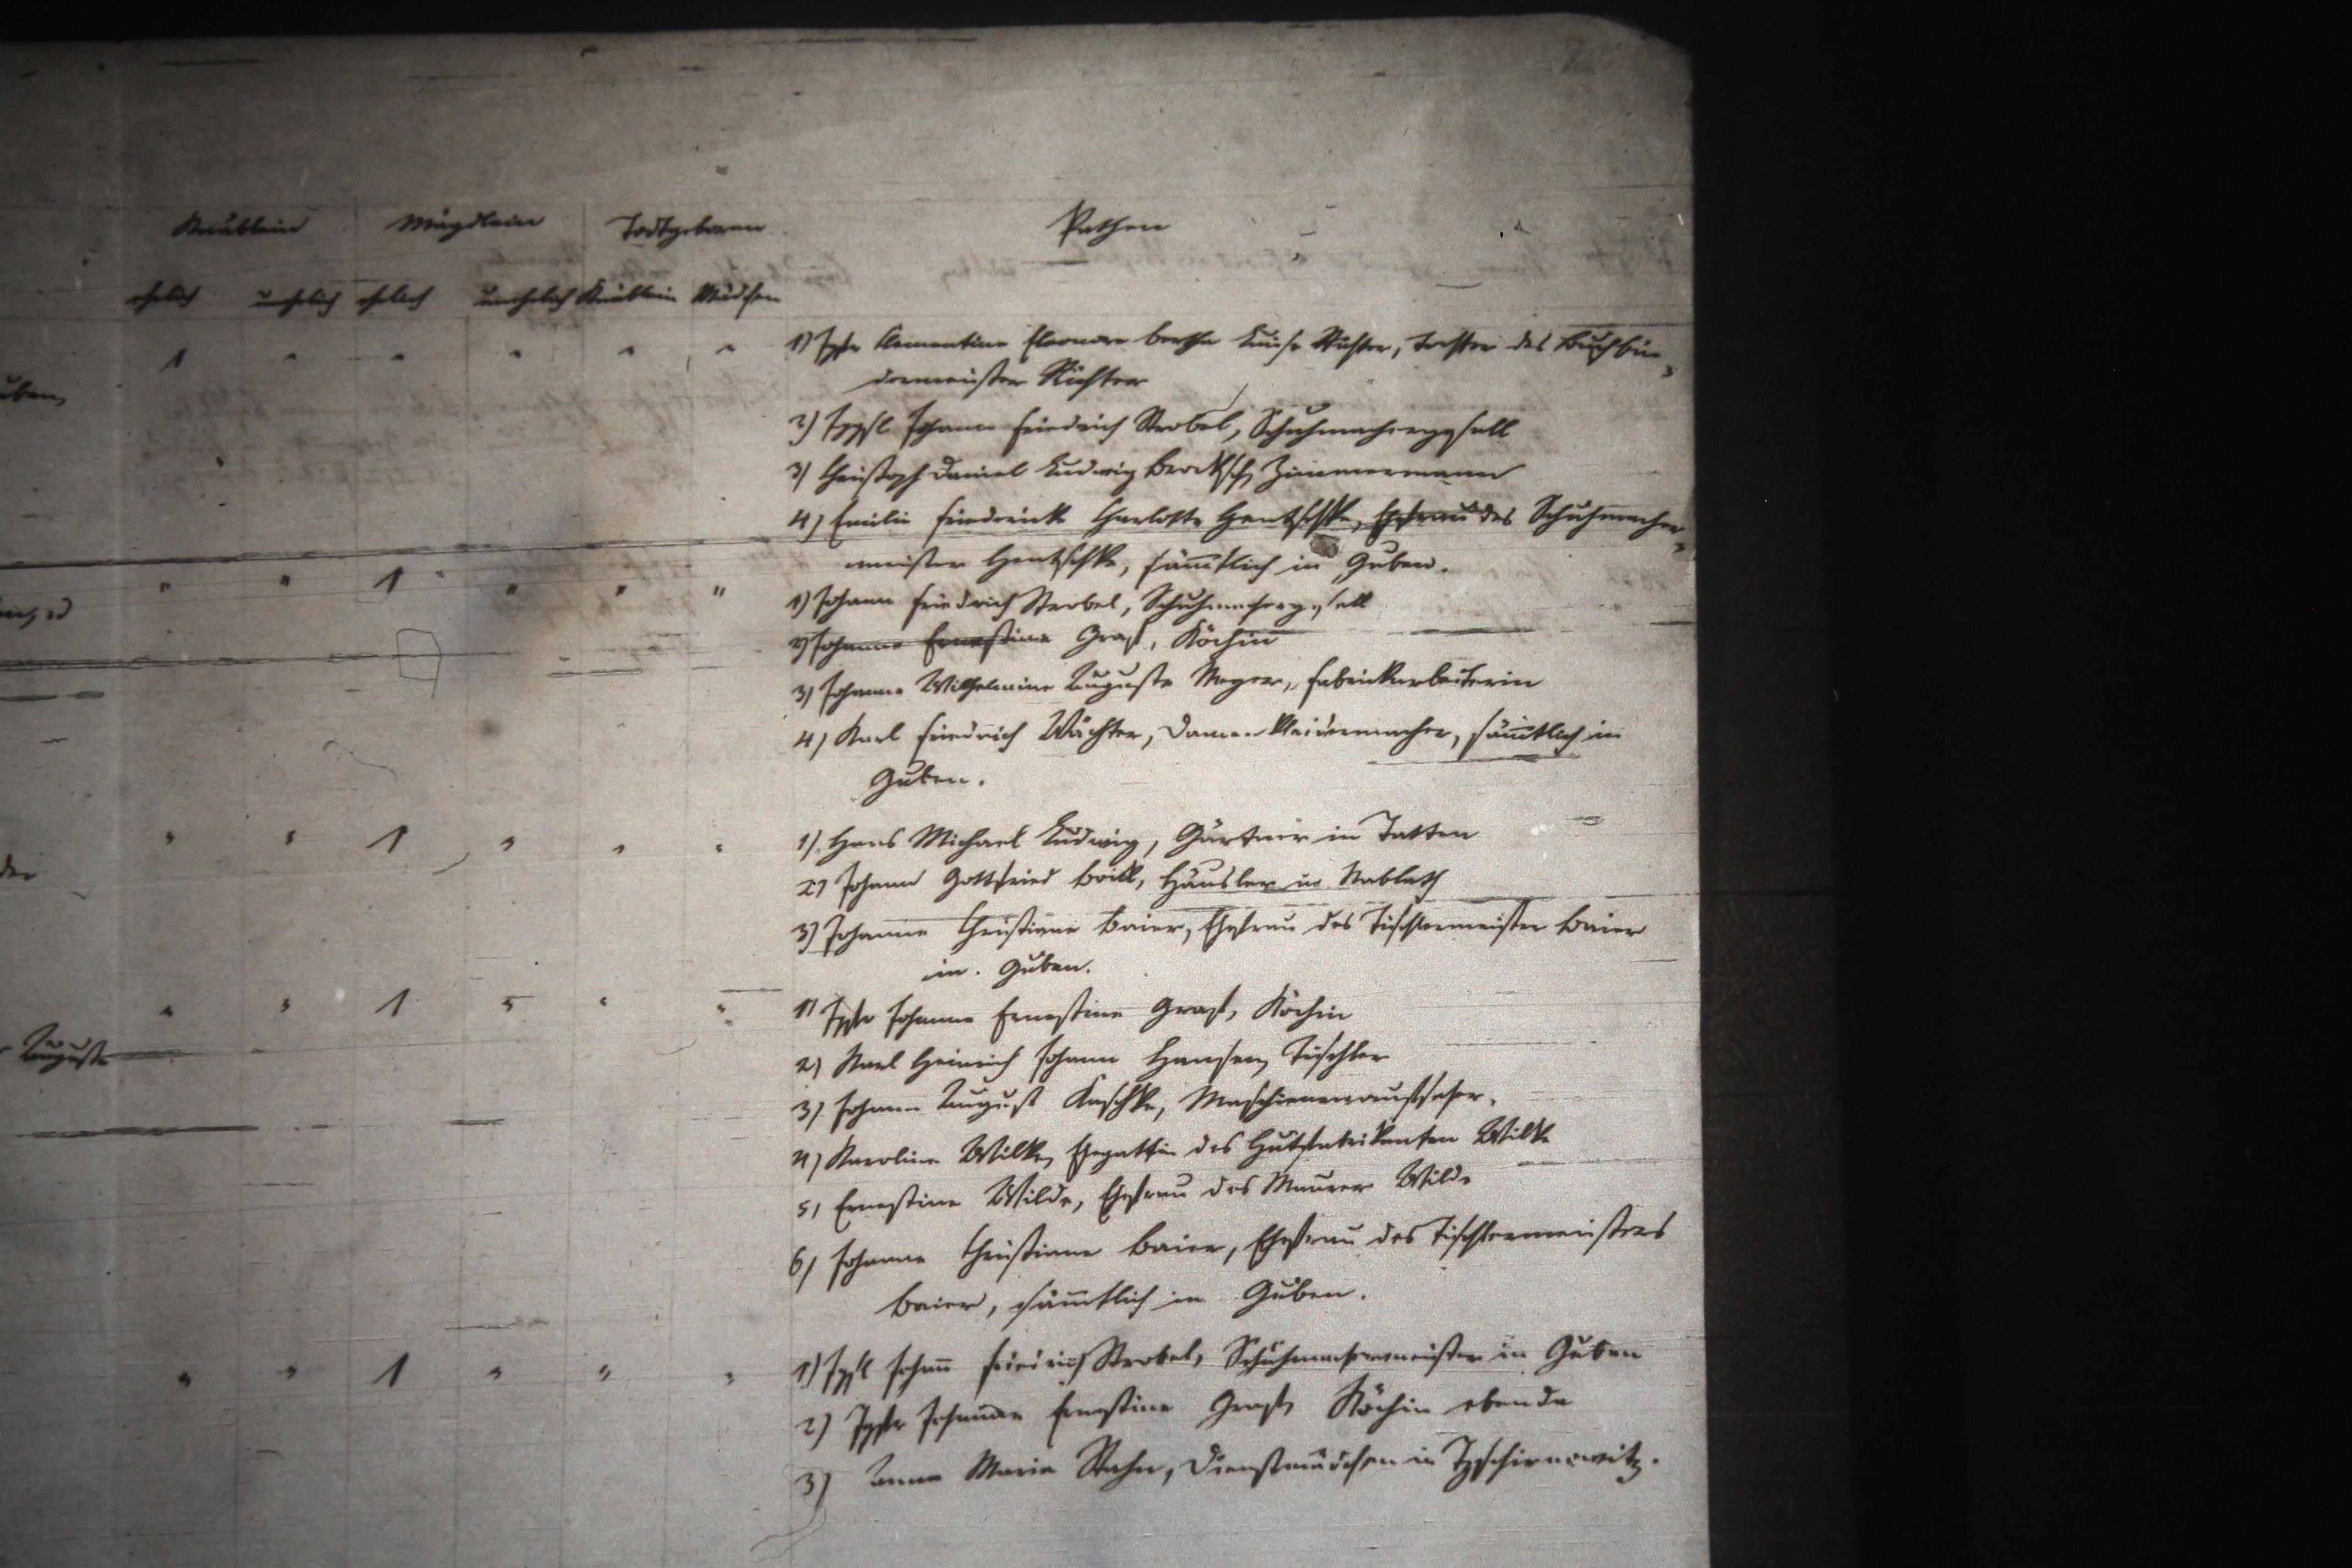 Knäblein Mägdlein Todtgeboren Pathen
ehelich unehelich ehelich unehelich Knäblein Mädchen
uben,
1 " " " " " 1) Igfr Clementine Eleonore Bertha Luise Richter, Tochter des Buchbin-
dermeister Richter
2) Iggsl Johann Friedrich Strobel, Schuhmachergesell
3) Christoph Daniel Ludwig Zimmermann
4) Emilie Friedericke Charlotte Hentschke, Ehefrau des Schuhmacher-
meister Hentschke, sämtlich in Guben.
" " 1 " " " 1) Johann Friedrich Strobel, Schuhmachergesell
2) Johanne Ernestine Graß, Köchin
3) Johanne Wilhelmine Auguste Meyer, Fabrickarbeiterin
4) Karl Friedrich Wächter, Damen Kleidermacher, sämtlich in
Guben.
der
" " 1 " " " 1) Hans Michael Ludwig, Gärtner in Tatten
2) Johann Gottfried Häusler in Nablath
3) Johanne Christiane Baier, Ehefrau des Tischlermeister Baier
in Guben.
Auguste
" " 1 " " " 1) Igfr Johanne Ernestine Graß, Köchin
2) Karl Heinrich Johann Hansen, Tischler
3) Johann August Kaschke,
4) Karoline Wilke, Ehegattin des Hutfabrikanten Wilke
5) Ernestine Wilde, Ehefrau des Maurer Wilde
6) Johanne Christiane Baier, Ehefrau des Tischlermeisters
Baier, sämtlich in Guben.
" " 1 " " " 1) Iggsl Johann Friedrich Strobel, Schuhmachermeister in Guben
2) Igfr Johanne Ernestine Graß, Köchin ebenda
3) Anna Maria Dienstmädchen in Tzschiernowitz.